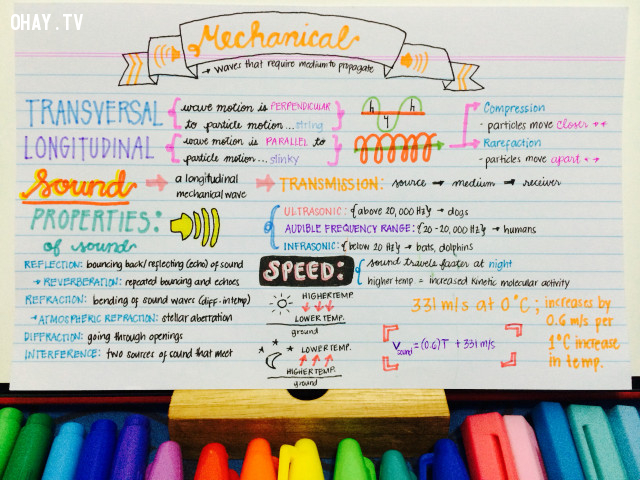 OHAY.TV
Mechanical
→ waves that require medium to propagate
TRANSVERSAL { wave motion is PERPENDICULAR }
to particle motion...string
LONGITUDINAL { wave motion is PARALLEL to }
particle motion...slinky
Compression
- particles move closer → ←
Rarefaction
- particles move apart ← →
Sound → a longitudinal
mechanical wave
→ TRANSMISSION: source → medium → receiver
PROPERTIES:
of sound
ULTRASONIC: {above 20,000 Hz} → dogs
AUDIBLE FREQUENCY RANGE: {20 - 20,000 Hz} → humans
INFRASONIC: {below 20 Hz} → bats, dolphins
REFLECTION: bouncing back/reflecting (echo) of sound
→ REVERBERATION: repeated bouncing and echoes
REFRACTION: bending of sound waves (diff. temp)
→ ATMOSPHERIC REFRACTION: stellar aberration
DIFFRACTION: going through openings
INTERFERENCE: two sources of sound that meet
SPEED: { sound travels faster at night
higher temp = increased kinetic molecular activity
HIGHER TEMP.
↓ ↓ ↓
LOWER TEMP.
ground
LOWER TEMP.
↑ ↑ ↑
HIGHER TEMP.
ground
331 m/s at 0°C ; increases by
0.6 m/s per
1°C increase
in temp.
Vsound = (0.6)T + 331 m/s